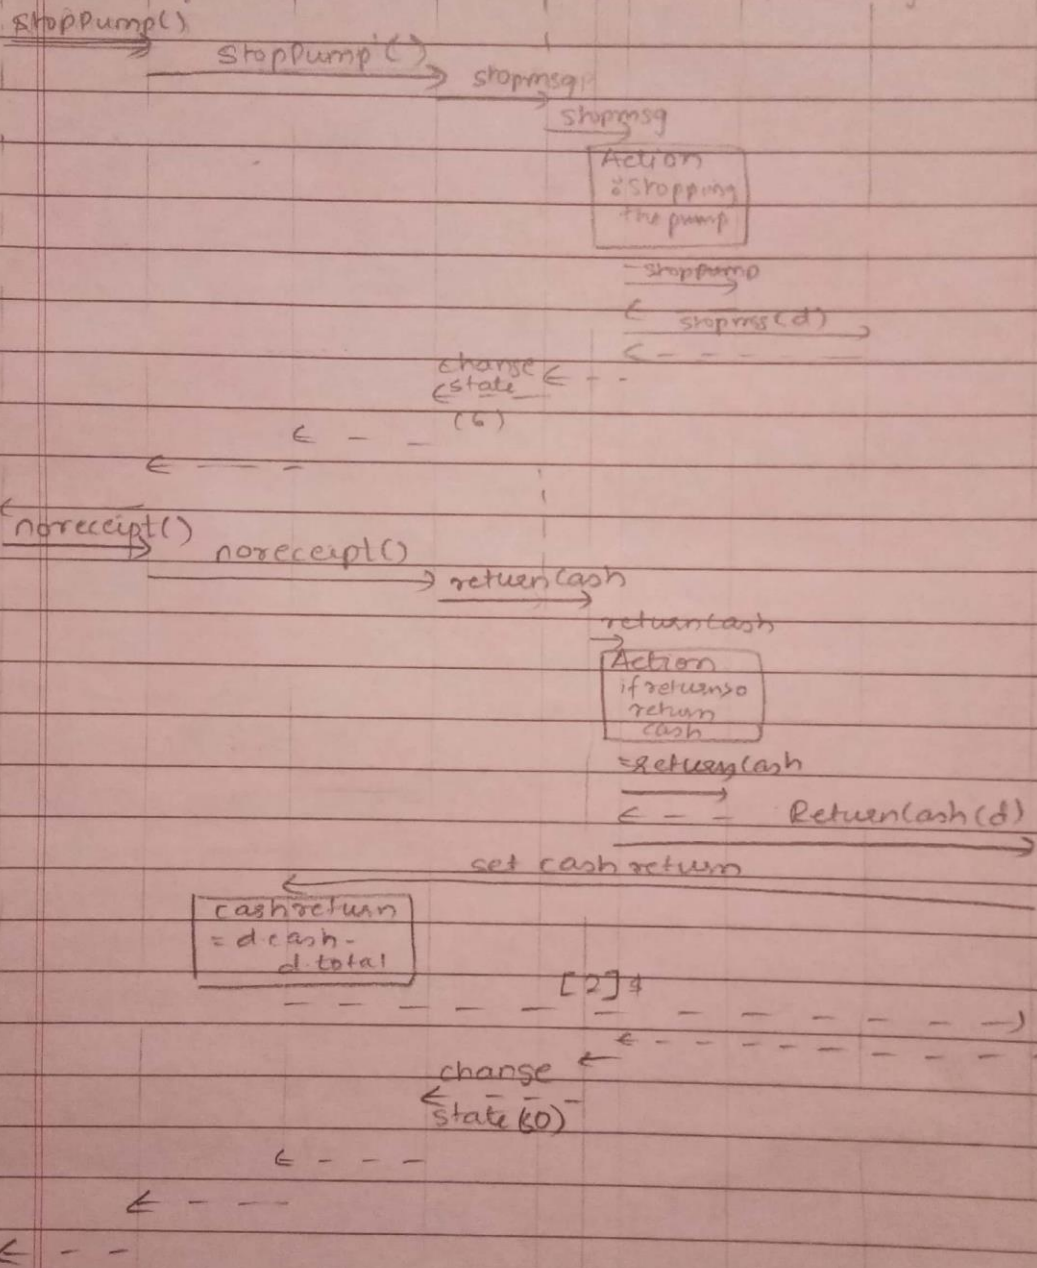 stopPump()
StopPump'()
stopmsg
stopmsg
Action
: Stopping
the pump
stoppump
stopmsg(d)
change
state
(6)
noreceipt()
noreceipt()
return Cash
return Cash
Action
if returns o
return
cash
= return Cash
ReturnCash(d)
set cash return
cashreturn
= d.cash -
d.total
[2]
change
state (s0)